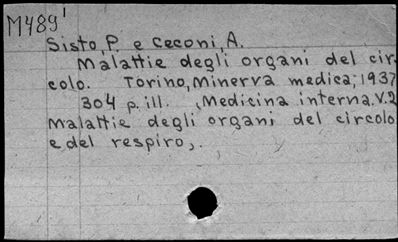 M489'
Sisto, P. e Ceconi, A.
Malattie degli organi del cir-
colo. Torino, Minerva medica, 1937
304 p. ill. (Medicina interna. V.2
Malattie degli organi del circolo
e del respiro).